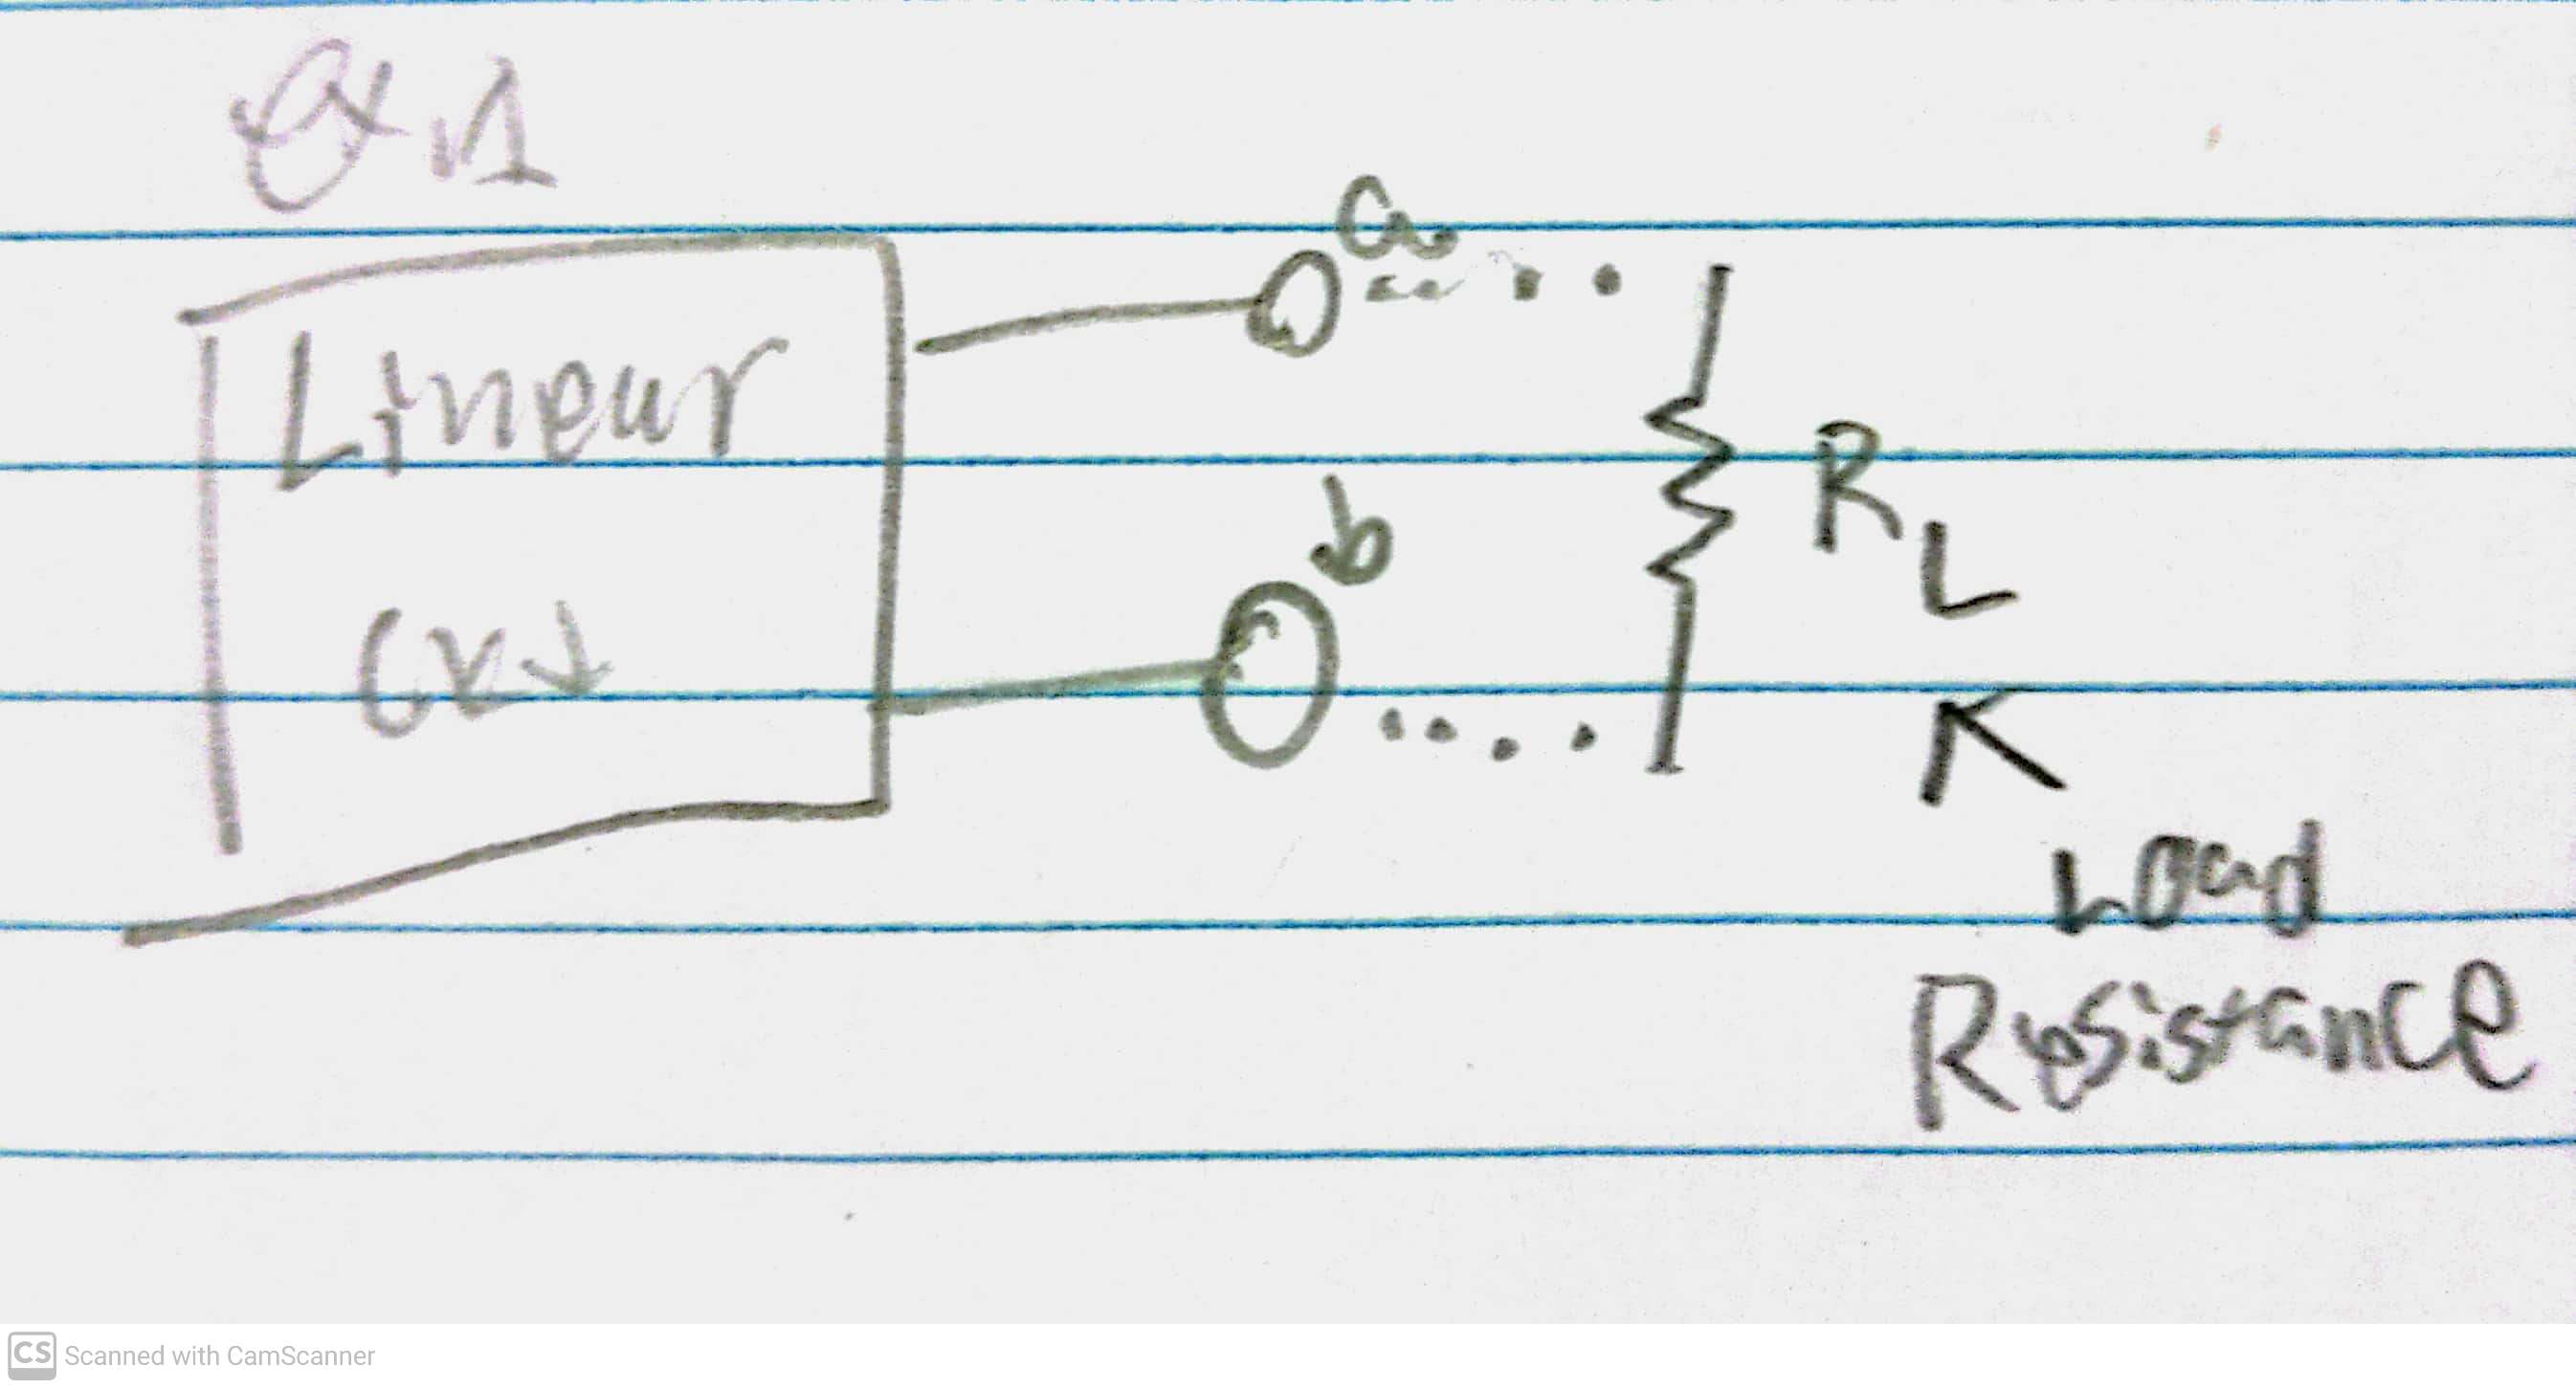 a
Linear
b
Ckt
R L
Load
Resistance
CS Scanned with CamScanner